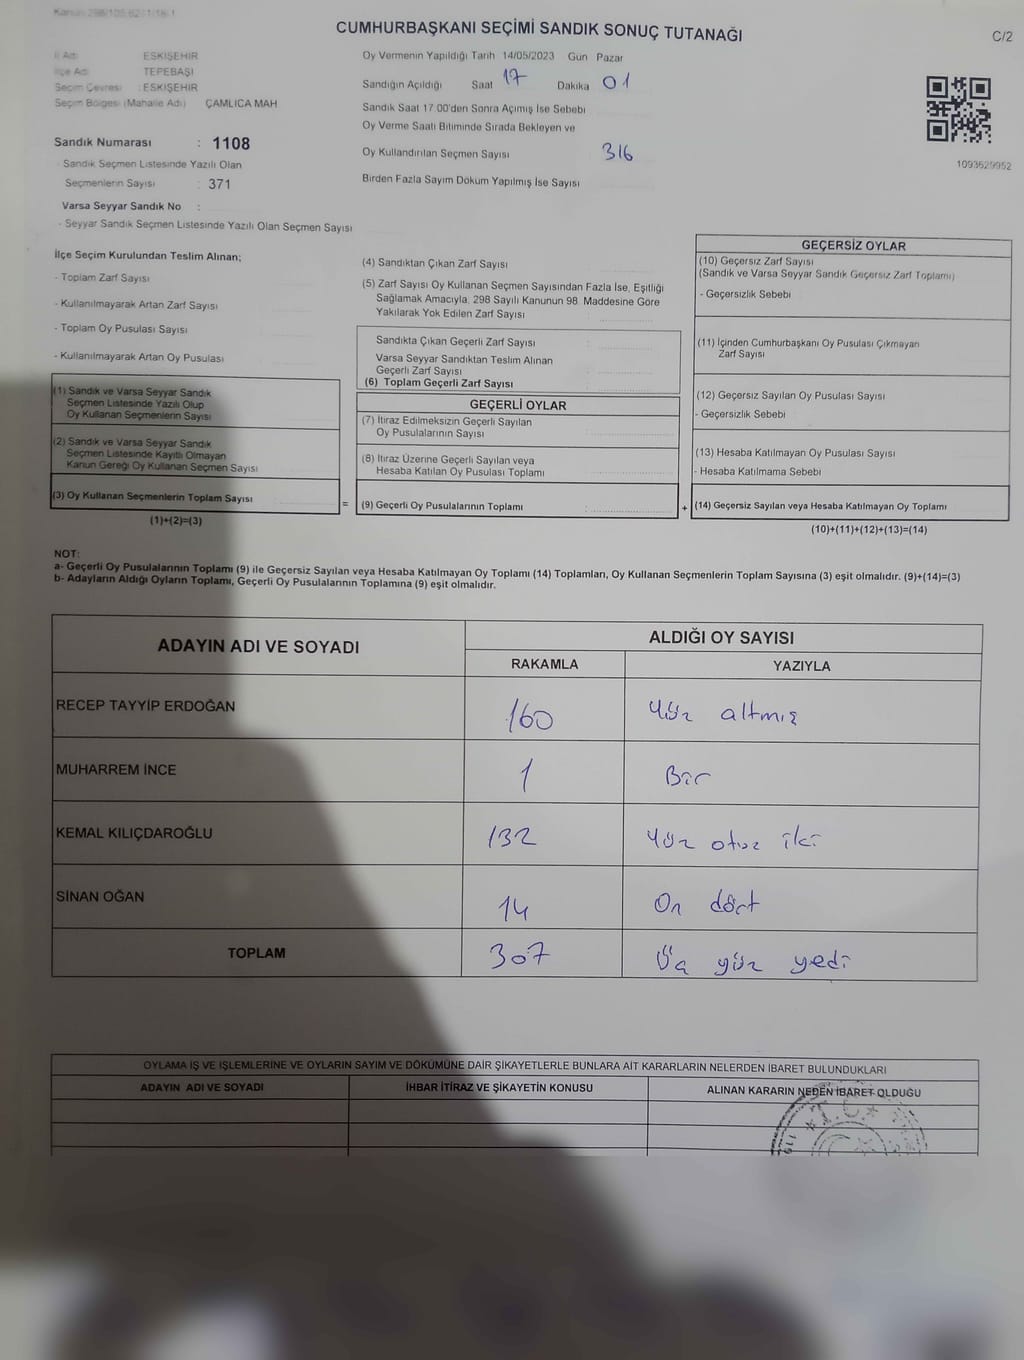 Kanun: 298/105,62/1/18/1
CUMHURBAŞKANI SEÇİMİ SANDIK SONUÇ TUTANAĞI
C/2
İl Adı : ESKİŞEHİR
İlçe Adı : TEPEBAŞI
Seçim Çevresi : ESKİŞEHİR
Seçim Bölgesi (Mahalle Adı) ÇAMLICA MAH
Oy Vermenin Yapıldığı Tarih 14/05/2023 Gün Pazar
Sandığın Açıldığı Saat 17 Dakika 01
Sandık Saat 17 00'den Sonra Açımış İse Sebebi
Oy Verme Saati Bitiminde Sırada Bekleyen ve
Oy Kullandırılan Seçmen Sayısı 316
Birden Fazla Sayım Döküm Yapılmış İse Sayısı
1093629952
Sandık Numarası : 1108
- Sandık Seçmen Listesinde Yazılı Olan
Seçmenlerin Sayısı : 371
Varsa Seyyar Sandık No :
- Seyyar Sandık Seçmen Listesinde Yazılı Olan Seçmen Sayısı
İlçe Seçim Kurulundan Teslim Alınan;
- Toplam Zarf Sayısı
- Kullanılmayarak Artan Zarf Sayısı
- Toplam Oy Pusulası Sayısı
- Kullanılmayarak Artan Oy Pusulası
(1) Sandık ve Varsa Seyyar Sandık
Seçmen Listesinde Yazılı Olup
Oy Kullanan Seçmenlerin Sayısı
(2) Sandık ve Varsa Seyyar Sandık
Seçmen Listesinde Kayıtlı Olmayan
Kanun Gereği Oy Kullanan Seçmen Sayısı
(3) Oy Kullanan Seçmenlerin Toplam Sayısı
(1)+(2)=(3)
(4) Sandıktan Çıkan Zarf Sayısı
(5) Zarf Sayısı Oy Kullanan Seçmen Sayısından Fazla İse, Eşitliği
Sağlamak Amacıyla, 298 Sayılı Kanunun 98. Maddesine Göre
Yakılarak Yok Edilen Zarf Sayısı
Sandıkta Çıkan Geçerli Zarf Sayısı
Varsa Seyyar Sandıktan Teslim Alınan
Geçerli Zarf Sayısı
(6) Toplam Geçerli Zarf Sayısı
GEÇERLİ OYLAR
(7) İtiraz Edilmeksizin Geçerli Sayılan
Oy Pusulalarının Sayısı
(8) İtiraz Üzerine Geçerli Sayılan veya
Hesaba Katılan Oy Pusulası Toplamı
= (9) Geçerli Oy Pusulalarının Toplamı
GEÇERSİZ OYLAR
(10) Geçersiz Zarf Sayısı
(Sandık ve Varsa Seyyar Sandık Geçersiz Zarf Toplamı)
- Geçersizlik Sebebi
(11) İçinden Cumhurbaşkanı Oy Pusulası Çıkmayan
Zarf Sayısı
(12) Geçersiz Sayılan Oy Pusulası Sayısı
- Geçersizlik Sebebi
(13) Hesaba Katılmayan Oy Pusulası Sayısı
- Hesaba Katılmama Sebebi
+ (14) Geçersiz Sayılan veya Hesaba Katılmayan Oy Toplamı
(10)+(11)+(12)+(13)=(14)
NOT:
a- Geçerli Oy Pusulalarının Toplamı (9) ile Geçersiz Sayılan veya Hesaba Katılmayan Oy Toplamı (14) Toplamları, Oy Kullanan Seçmenlerin Toplam Sayısına (3) eşit olmalıdır. (9)+(14)=(3)
b- Adayların Aldığı Oyların Toplamı, Geçerli Oy Pusulalarının Toplamına (9) eşit olmalıdır.
ADAYIN ADI VE SOYADI
ALDIĞI OY SAYISI
RAKAMLA YAZIYLA
RECEP TAYYİP ERDOĞAN 160 Yüz altmış
MUHARREM İNCE 1 Bir
KEMAL KILIÇDAROĞLU 132 Yüz otuz iki
SİNAN OĞAN 14 On dört
TOPLAM 307 Üç yüz yedi
OYLAMA İŞ VE İŞLEMLERİNE VE OYLARIN SAYIM VE DÖKÜMÜNE DAİR ŞİKAYETLERLE BUNLARA AİT KARARLARIN NELERDEN İBARET BULUNDUKLARI
ADAYIN ADI VE SOYADI İHBAR İTİRAZ VE ŞİKAYETİN KONUSU ALINAN KARARIN NEDEN İBARET OLDUĞU
T.C.